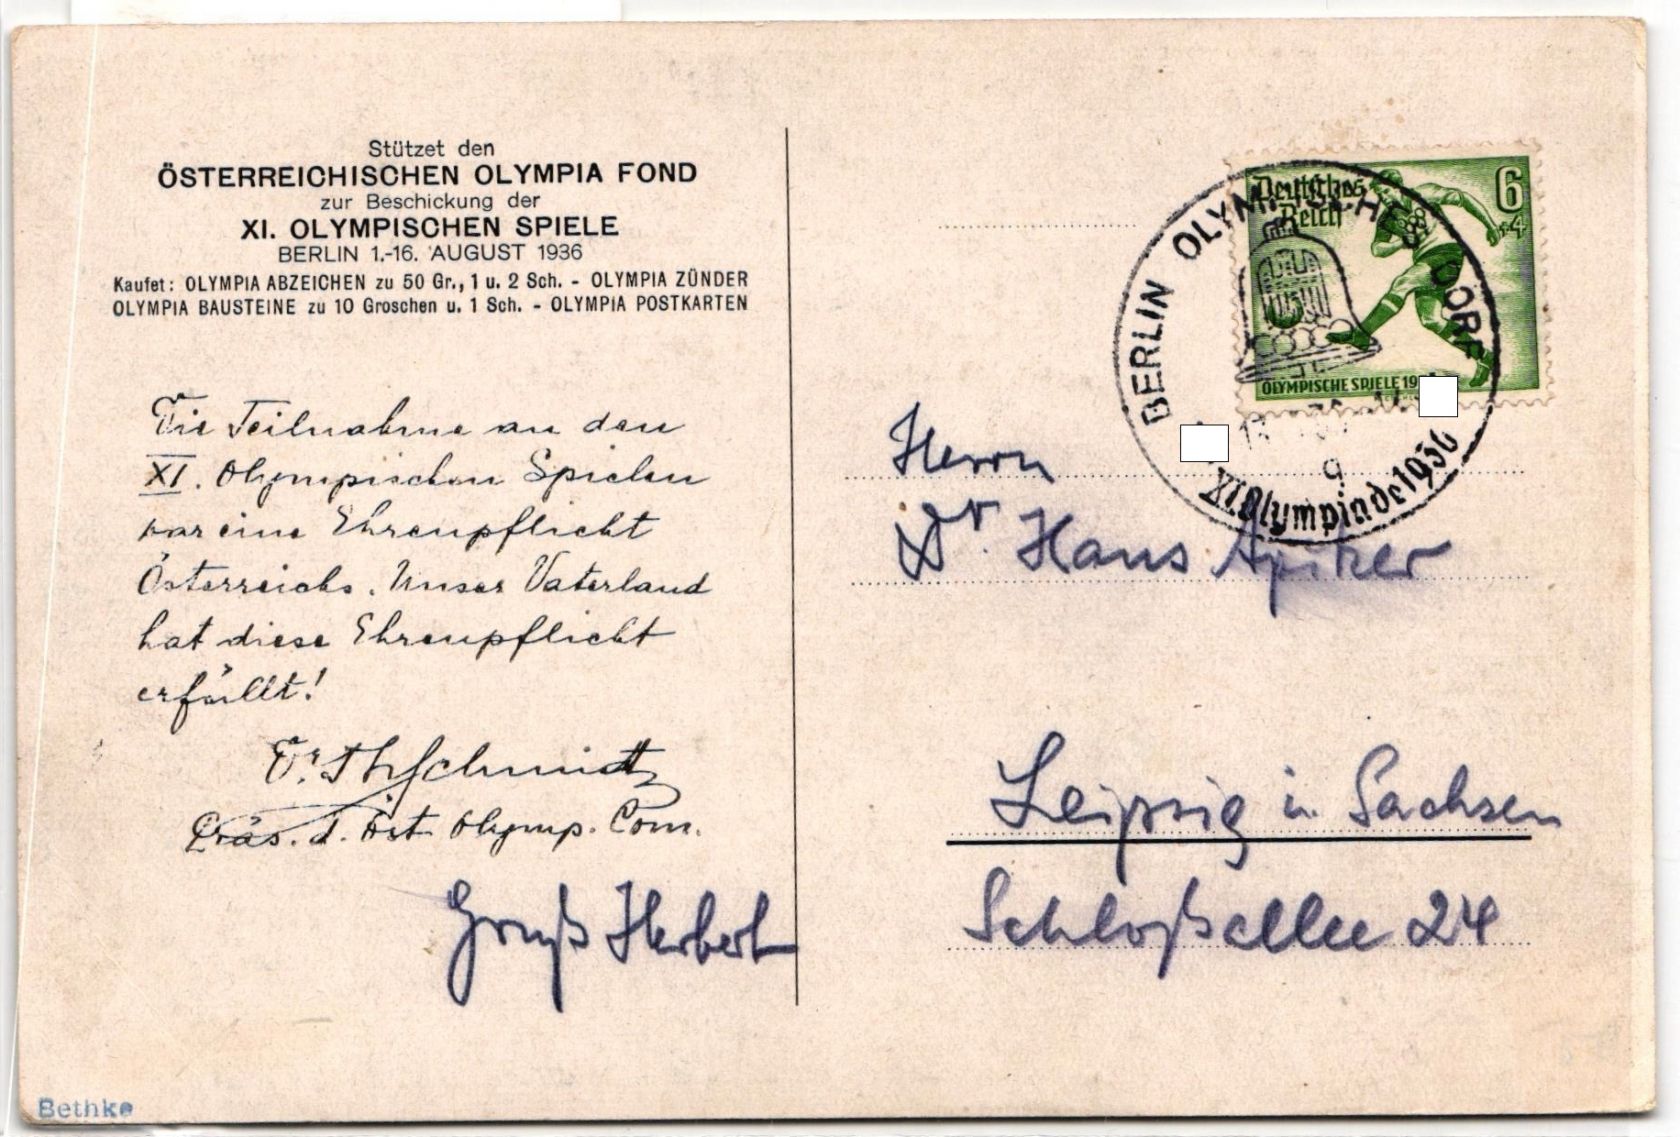 Stützet den
ÖSTERREICHISCHEN OLYMPIA FOND
zur Beschickung der
XI. OLYMPISCHEN SPIELE
BERLIN 1.-16. AUGUST 1936
Kaufet: OLYMPIA ABZEICHEN zu 50 Gr., 1 u. 2 Sch. - OLYMPIA ZÜNDER
OLYMPIA BAUSTEINE zu 10 Groschen u. 1 Sch. - OLYMPIA POSTKARTEN
Die Teilnahme an den
XI. Olympischen Spielen
war eine Ehrenpflicht
Österreichs. Unser Vaterland
hat diese Ehrenpflicht
erfüllt!
Dr. Th Schmidt
Präs. d. Öst. Olymp. Com.
Gruß Herbert
Bethke
Deutsches
Reich
6
+4
OLYMPISCHE SPIELE 19
BERLIN OLYMPISCHES DORF
XI. Olympiade 1936
Herrn
Dr. Hans Spitzer
Leipzig in Sachsen
Schloßallee 24